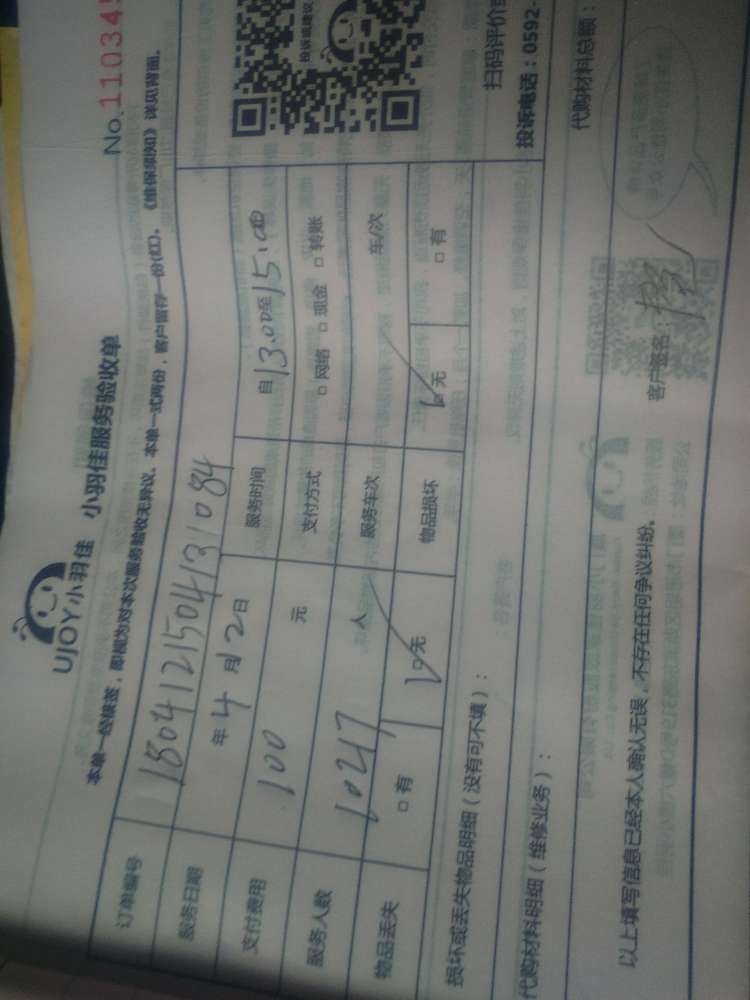 No.11034
UJOY小羽佳 小羽佳服务验收单
本单一经接签，即视为对本次服务验收无异议。本单一式两份，客户留存一份(红)。《维保须知》详见背面。
订单编号 180412150413​1084
服务日期 年4月12日 服务时间 自13:00至15:00
支付费用 100 元 支付方式 □网络 □现金 □转账
服务人数 10217 人 服务车次 车/次
物品丢失 □有 □无 物品损坏 □无 □有
损坏或丢失物品明细（没有可不填）：
代购材料明细（维修业务）：
投诉或建议
扫码评价或
投诉电话：0592-
代购材料总额：
以上填写信息已经本人确认无误，不存在任何争议纠纷。 客户签名：